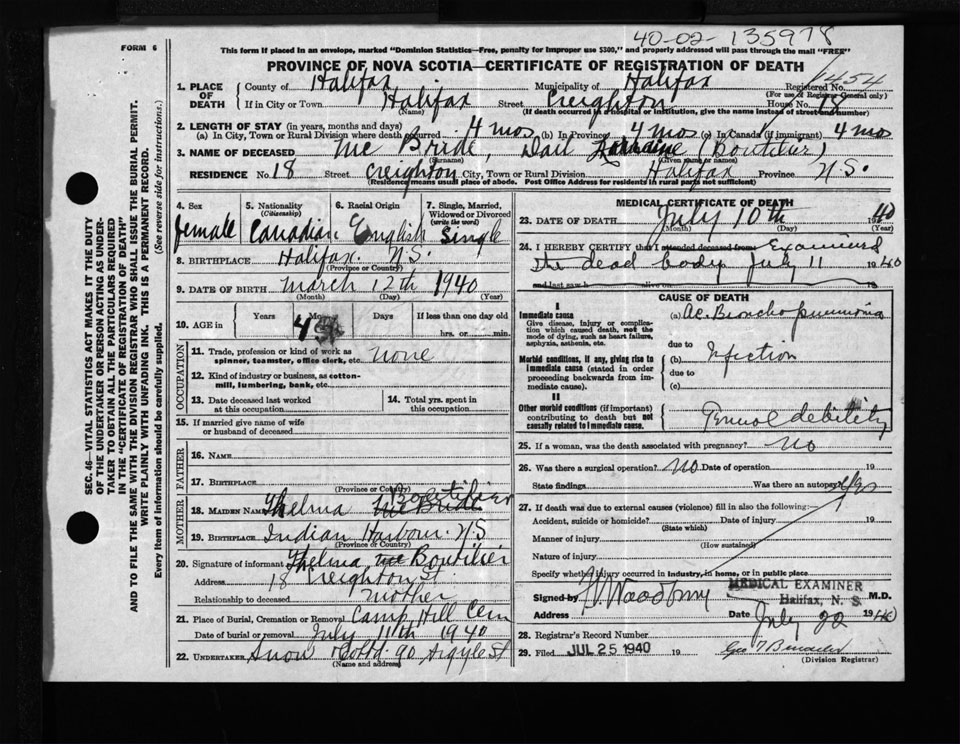 40-02-135978
FORM 6
This form if placed in an envelope, marked "Dominion Statistics—Free, penalty for improper use $300," and properly addressed will pass through the mail "FREE"
PROVINCE OF NOVA SCOTIA—CERTIFICATE OF REGISTRATION OF DEATH
1. PLACE OF DEATH County of Halifax Municipality of Halifax Registered No. 1454
(For use of Registrar General only)
If in City or Town Halifax Street Creighton House No. 18
(Name) (If death occurred in a hospital or institution, give the name instead of street and number)
2. LENGTH OF STAY (in years, months and days)
(a) In City, Town or Rural Division where death occurred 4 mos (b) In Province 4 mos (c) In Canada (if immigrant) 4 mos
3. NAME OF DECEASED Mc Bride, Dail (Boutilier)
(Surname) (Given name or names)
RESIDENCE No. 18 Street Creighton City, Town or Rural Division Halifax Province N.S.
(Residence means usual place of abode. Post Office Address for residents in rural parts not sufficient)
4. Sex female
5. Nationality (Citizenship) Canadian
6. Racial Origin English
7. Single, Married, Widowed or Divorced (write the word) Single
8. BIRTHPLACE Halifax. N.S.
(Province or Country)
9. DATE OF BIRTH March 12th 1940
(Month) (Day) (Year)
10. AGE in Years Months 4 Days If less than one day old
hrs. or min.
OCCUPATION
11. Trade, profession or kind of work as spinner, teamster, office clerk, etc. none
12. Kind of industry or business, as cotton-mill, lumbering, bank, etc.
13. Date deceased last worked at this occupation
14. Total yrs. spent in this occupation
15. If married give name of wife or husband of deceased
FATHER
16. NAME
17. BIRTHPLACE
(Province or Country)
MOTHER
18. MAIDEN NAME Thelma Mc Bride Boutilier
19. BIRTHPLACE Indian Harbour N.S
(Province or Country)
20. Signature of informant Thelma Mc Boutilier
Address 18 Creighton St.
Relationship to deceased mother
21. Place of Burial, Cremation or Removal Camp Hill Cem
Date of burial or removal July 11th 1940
22. UNDERTAKER Snow & Co Ltd. 90 Argyle St
(Name and address)
MEDICAL CERTIFICATE OF DEATH
23. DATE OF DEATH July 10th 1940
(Month) (Day) (Year)
24. I HEREBY CERTIFY that I attended deceased from Examined
the dead body July 11 1940
and last saw h alive on 19
CAUSE OF DEATH
I
Immediate cause
Give disease, injury or complication which caused death, not the mode of dying, such as heart failure, asphyxia, asthenia, etc.
(a) Ac. Broncho pneumonia
due to
Morbid conditions, if any, giving rise to immediate cause (stated in order proceeding backwards from immediate cause.
(b)
due to
(c)
II
Other morbid conditions (if important) contributing to death but not causally related to immediate cause.
debility
25. If a woman, was the death associated with pregnancy? No
26. Was there a surgical operation? No Date of operation 19
State findings Was there an autopsy?
27. If death was due to external causes (violence) fill in also the following:
Accident, suicide or homicide? Date of injury 19
(State which)
Manner of injury
(How sustained)
Nature of injury
Specify whether injury occurred in industry, in home, or in public place
Signed by Woodbury M.D.
MEDICAL EXAMINER
Halifax, N. S.
Address Date July 22 1940
28. Registrar's Record Number
29. Filed JUL 25 1940 19
(Division Registrar)
SEC. 46—VITAL STATISTICS ACT MAKES IT THE DUTY OF THE UNDERTAKER OR PERSON ACTING AS UNDERTAKER TO OBTAIN ALL THE PARTICULARS REQUIRED IN THE "CERTIFICATE OF REGISTRATION OF DEATH" AND TO FILE THE SAME WITH THE DIVISION REGISTRAR WHO SHALL ISSUE THE BURIAL PERMIT.
WRITE PLAINLY WITH UNFADING INK. THIS IS A PERMANENT RECORD.
Every item of Information should be carefully supplied. (See reverse side for instructions.)